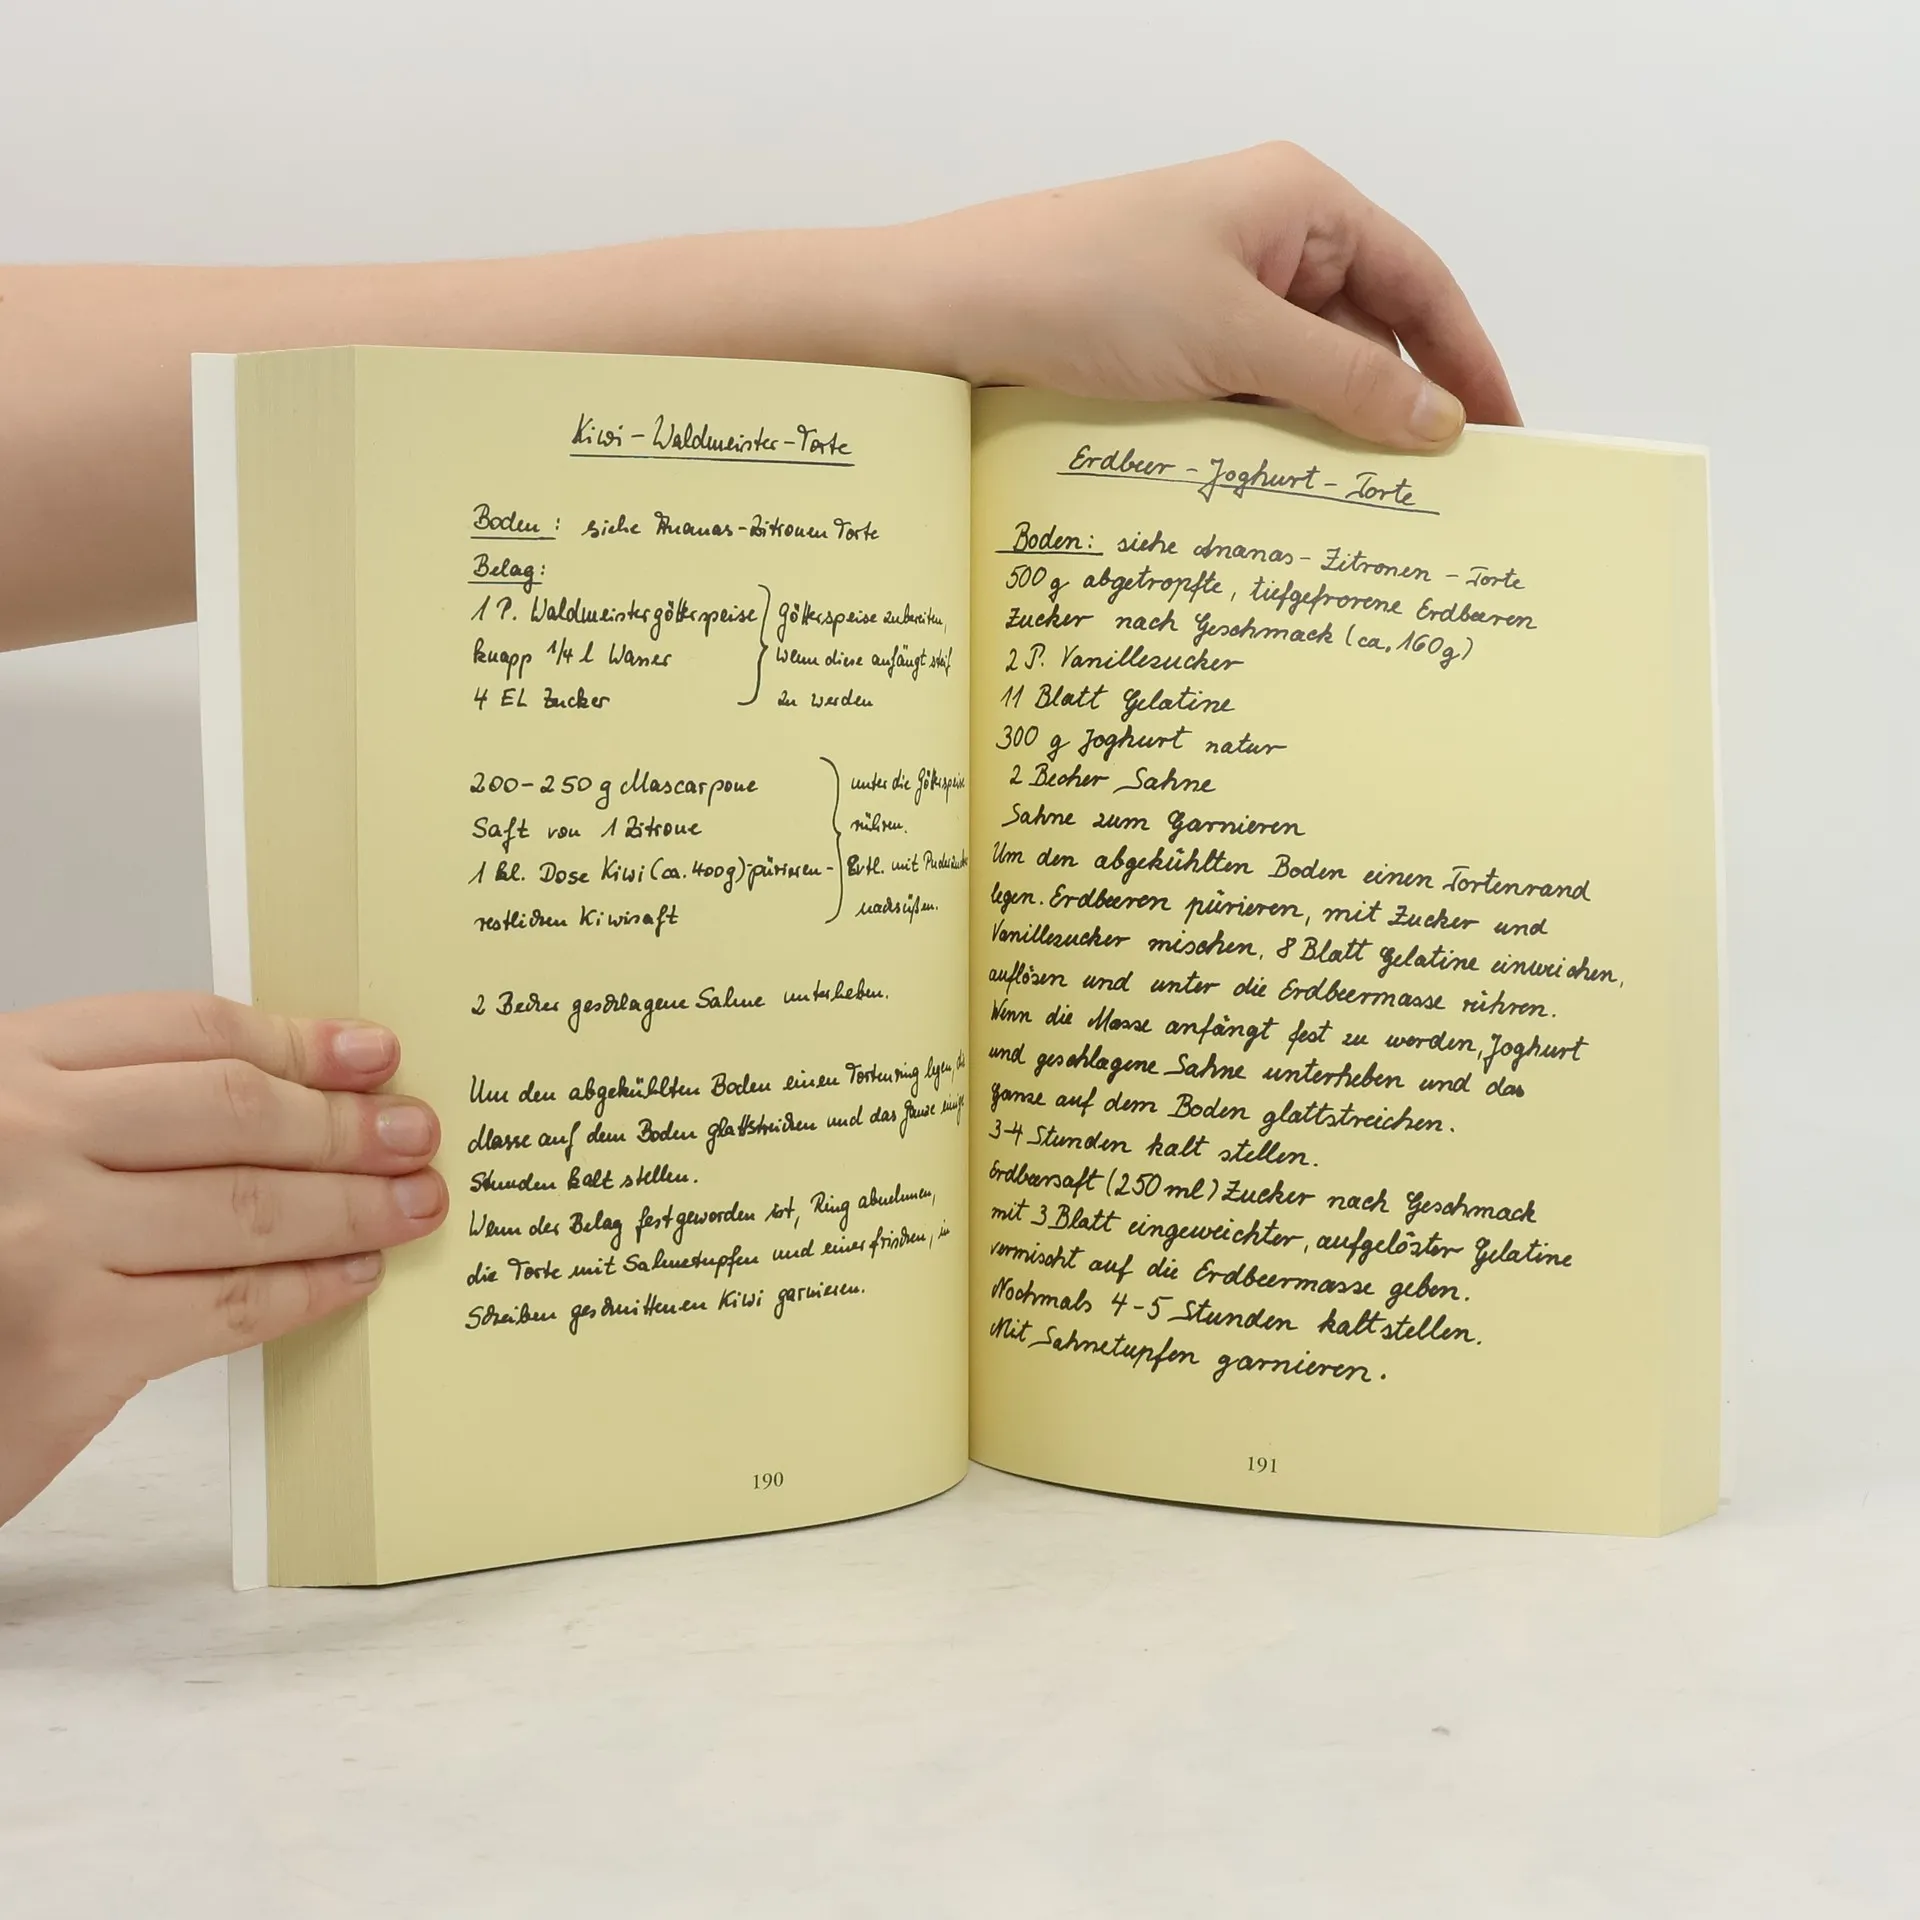 Kiwi - Waldmeister - Torte
Boden: siehe Ananas-Zitronen Torte
Belag:
1 P. Waldmeistergötterspeise
knapp 1/4 l Wasser
4 EL Zucker
Götterspeise zubereiten,
wenn diese anfängt steif
zu werden
200-250 g Mascarpone
Saft von 1 Zitrone
1 kl. Dose Kiwi (ca. 400g) pürieren -
restlichen Kiwisaft
unter die Götterspeise
rühren.
Evtl. mit
nachsüßen.
2 Becher geschlagene Sahne unterheben.
Um den abgekühlten Boden einen Tortenring legen,
Masse auf dem Boden glattstreichen und das Ganze einige
Stunden kalt stellen.
Wenn der Belag fest geworden ist, Ring abnehmen,
die Torte mit Sahnetupfen und einer frischen, in
Scheiben geschnittenen Kiwi garnieren.
190
Erdbeer - Joghurt - Torte
Boden: siehe Ananas - Zitronen - Torte
500 g abgetropfte, tiefgefrorene Erdbeeren
Zucker nach Geschmack (ca. 160g)
2 P. Vanillezucker
11 Blatt Gelatine
300 g Joghurt natur
2 Becher Sahne
Sahne zum Garnieren
Um den abgekühlten Boden einen Tortenrand
legen. Erdbeeren pürieren, mit Zucker und
Vanillezucker mischen, 8 Blatt Gelatine einweichen,
auflösen und unter die Erdbeermasse rühren.
Wenn die Masse anfängt fest zu werden, Joghurt
und geschlagene Sahne unterheben und das
Ganze auf dem Boden glattstreichen.
3-4 Stunden kalt stellen.
Erdbeersaft (250 ml) Zucker nach Geschmack
mit 3 Blatt eingeweichter, aufgelöster Gelatine
vermischt auf die Erdbeermasse geben.
Nochmals 4-5 Stunden kaltstellen.
Mit Sahnetupfen garnieren.
191